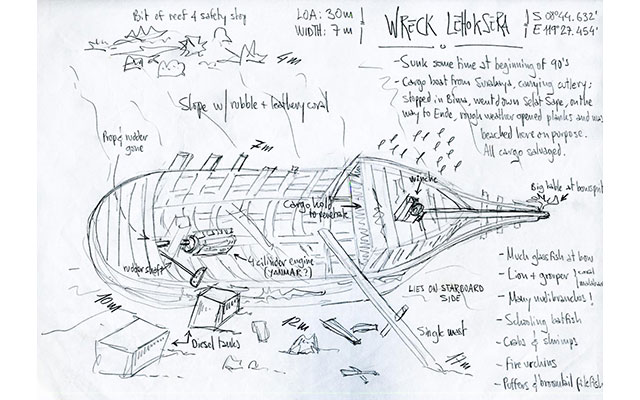 Bit of reef & safety stop
LOA: 30m
WIDTH: 7m
WRECK LEHOKSERA
S 08°44.632'
E 119°27.454'
5m
- Sunk some time at beginning of 90's
- Cargo boat from Surabaya, carrying cutlery;
stopped in Bima, went down Selat Sape, on the
way to Ende, rough weather opened planks and was
beached here on purpose.
All cargo salvaged.
Slope w/ rubble + leathery coral
Prop & rudder
gone
7m
winche
Cargo hold
to penetrate
Big table at bowsprit
rudder shaft
4 cilinder engine
(YANMAR?)
LIES ON STARBOARD
SIDE
10m
12m
Single mast
17m
Diesel tanks
- Much glassfish at bow
- Lion + grouper
- Many nudibranches!
- Schooling batfish
- Crabs & shrimps
- Fire urchins
- Puffers & broomtail filefish